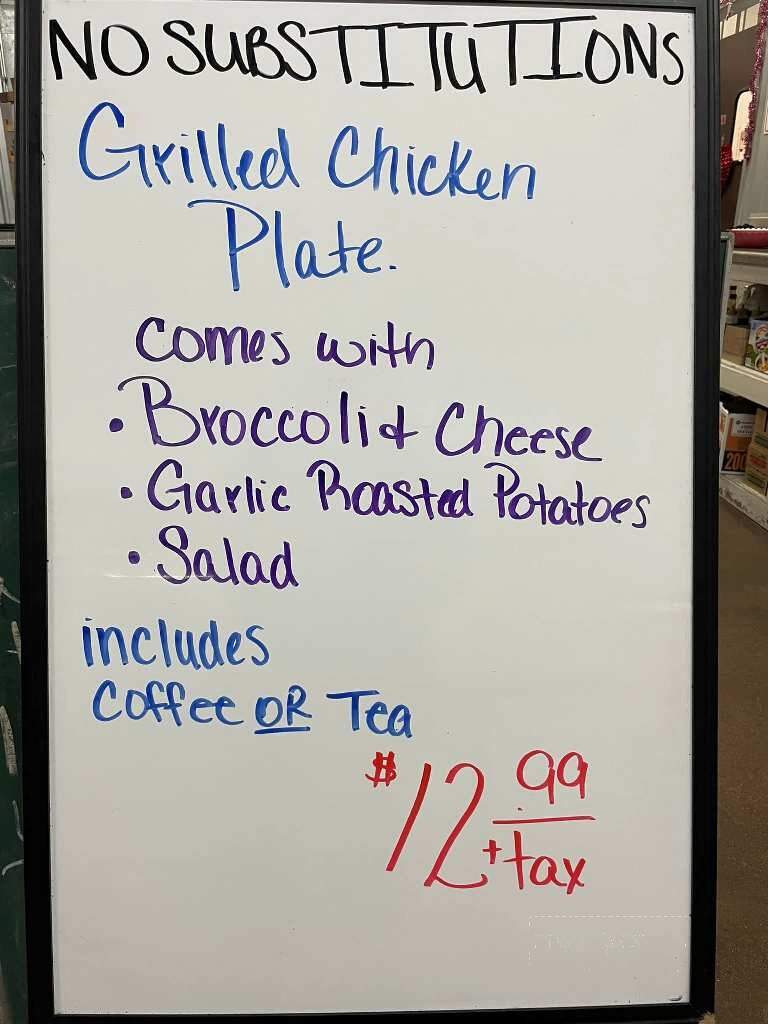 NO SUBSTITUTIONS
Grilled Chicken
Plate.
comes with
• Broccoli & Cheese
• Garlic Roasted Potatoes
• Salad
includes
Coffee OR Tea
$12.99
+tax